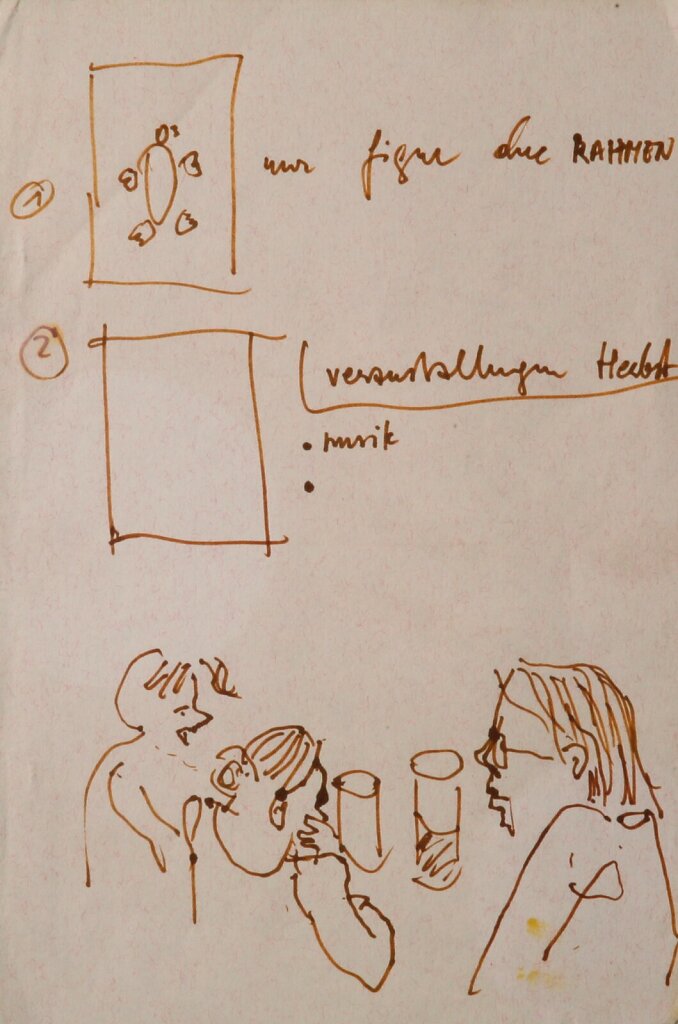 ① nur figur ohne RAHMEN
② veranstaltungen Herbst
• musik
•